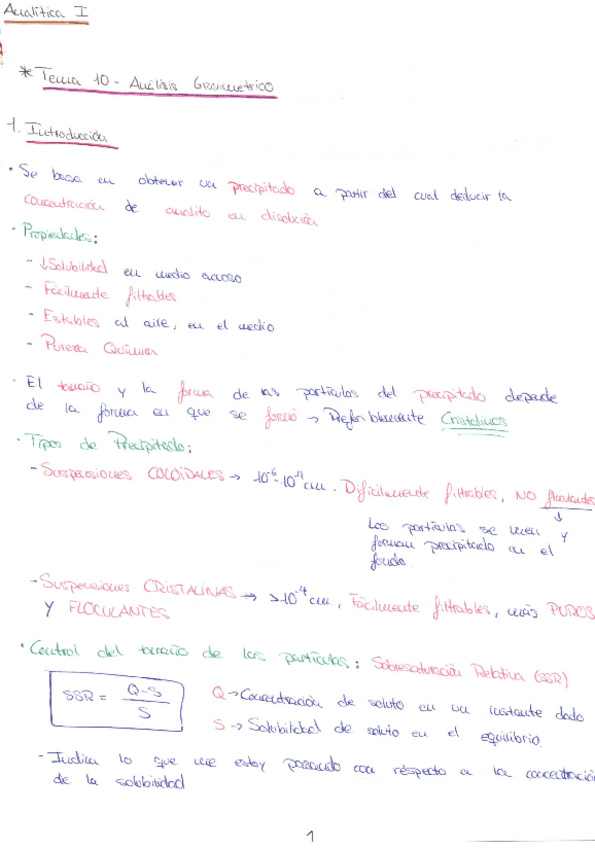 Analítica I
* Tema 10 - Análisis Gravimétrico
1. Introducción
· Se basa en obtener un precipitado a partir del cual deducir la
concentración de analito en disolución
· Propiedades:
- ↓Solubilidad en medio acuoso
- Fácilmente filtrables
- Estables al aire, en el medio
- Pureza Química
· El tamaño y la forma de las partículas del precipitado depende
de la forma en que se formó → Preferiblemente Cristalinos
· Tipos de Precipitado:
- Suspensiones COLOIDALES → 10⁻⁶-10⁻⁴cm. Dificilmente filtrables, NO floculantes
↓
Las partículas se unen y
forman precipitado en el
fondo.
- Suspensiones CRISTALINAS → >10⁻⁴cm, Fácilmente filtrables, más PUROS
Y FLOCULANTES
· Control del tamaño de las partículas: Sobresaturación Relativa (SSR)
SSR = Q-S / S
Q → Concentración de soluto en un instante dado
S → Solubilidad de soluto en el equilibrio.
- Indica lo que me estoy pasando con respecto a la concentración
de la solubilidad
1